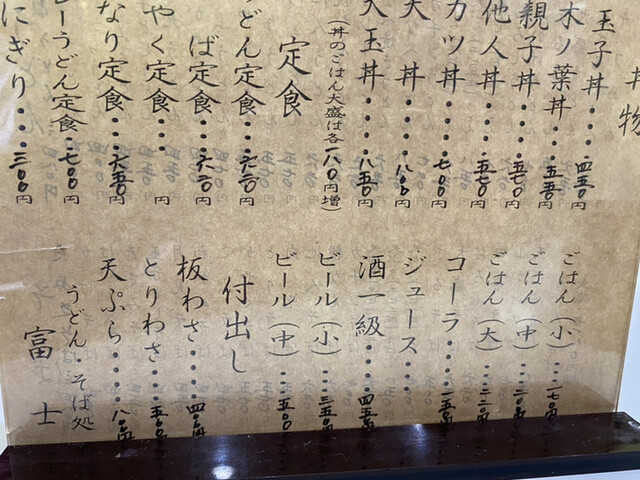 丼物
玉子丼‥‥四五〇円
木ノ葉丼‥‥五五〇円
親子丼‥‥五七〇円
他人丼‥‥五七〇円
カツ丼‥‥七〇〇円
天丼‥‥八〇〇円
天玉丼‥‥八五〇円
(丼のごはん大盛は各一八〇円増)
定食
うどん定食‥‥円
ば定食‥‥円
やく定食‥‥円
なり定食‥‥六五〇円
レーうどん定食‥七〇〇円
にぎり‥‥三〇〇円
ごはん(小)‥‥一七〇
ごはん(中)‥‥二〇〇
ごはん(大)‥‥
コーラ‥‥二五〇
ジュース‥‥
酒一級‥‥四五〇
ビール(小)‥‥三五〇
ビール(中)‥‥五五〇
付出し
板わさ‥‥四〇〇
とりわさ‥‥五〇〇
天ぷら‥‥八〇〇
うどん・そば処
富士